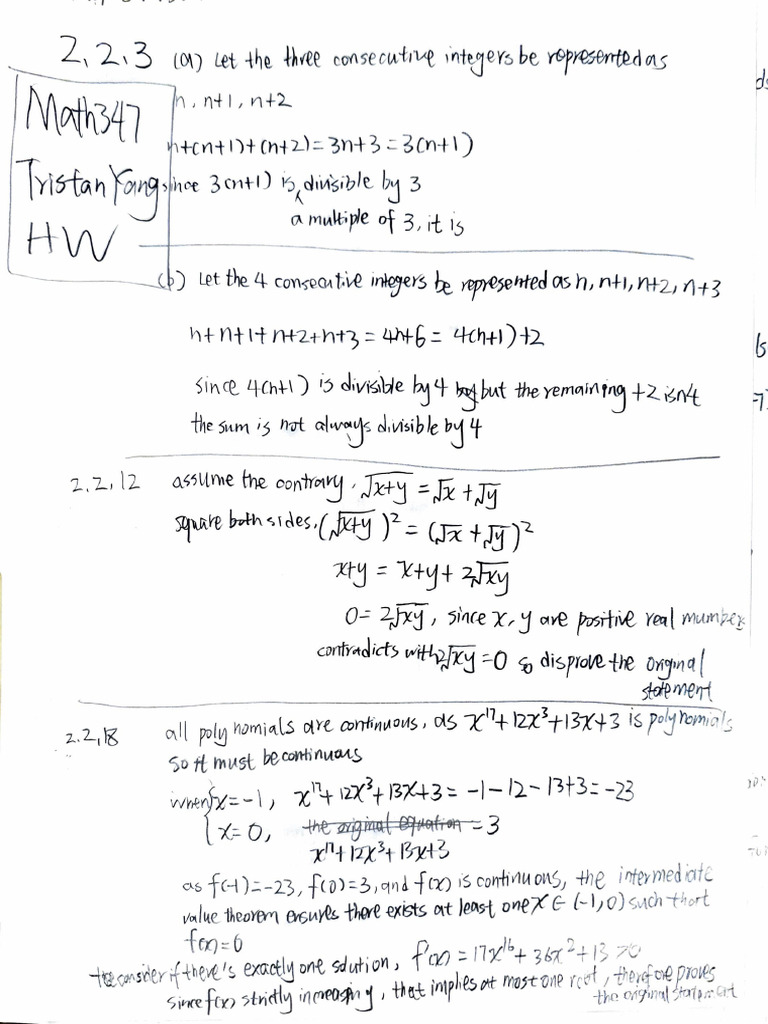 2.2.3 (a) Let the three consecutive integers be represented as
Math347
Tristan Yang
HW
n, n+1, n+2
n+(n+1)+(n+2)=3n+3=3(n+1)
since 3(n+1) is divisible by 3
a multiple of 3, it is
(b) Let the 4 consecutive integers be represented as n, n+1, n+2, n+3
n+n+1+n+2+n+3=4n+6=4(n+1)+2
since 4(n+1) is divisible by 4 but the remaining +2 isn't
the sum is not always divisible by 4
2.2.12 assume the contrary. √x+y = √x + √y
square both sides. (√x+y)² = (√x + √y)²
x+y = x+y+2√xy
0=2√xy, since x, y are positive real mumbers
contradicts with 2√xy=0 so disprove the original
statement
2.2.18 all polynomials are continuous, as x¹⁷+12x³+13x+3 is polynomials
so it must be continuous
when { x=-1, x¹⁷+12x³+13x+3=-1-12-13+3=-23
x=0, the original equation =3
x¹⁷+12x³+13x+3
as f(-1)=-23, f(0)=3, and f(x) is continuous, the intermediate
value theorem ensures there exists at least one x ∈ (-1,0) such that
f(x)=0
to consider if there's exactly one solution, f'(x)=17x¹⁶+36x²+13>0
since f(x) strictly increasing, that implies at most one root, therefore proves
the original statement